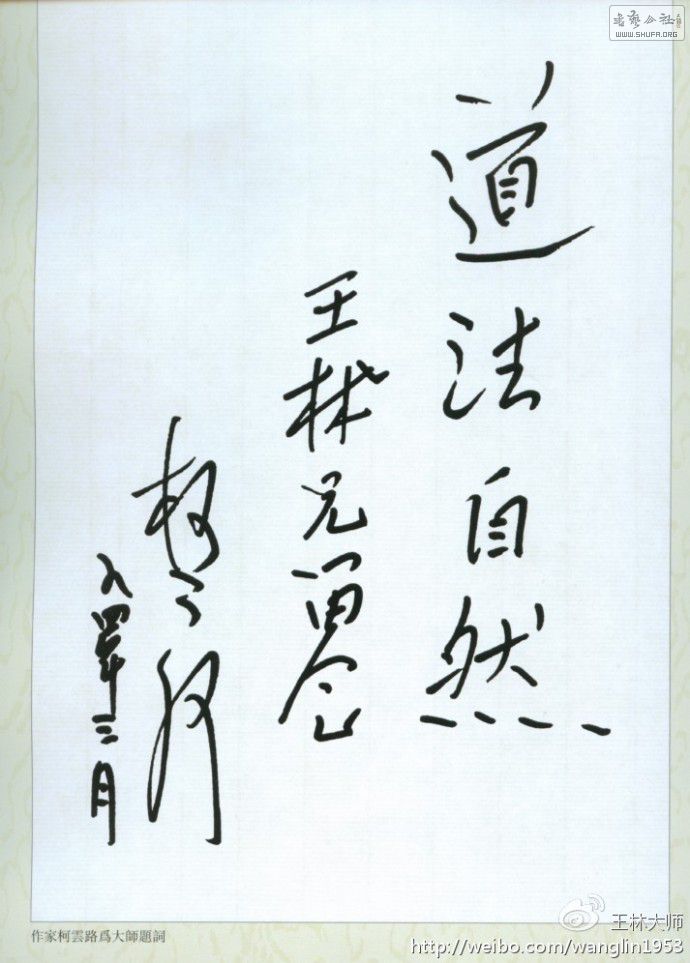 書藝公社
WWW.SHUFA.ORG
道法自然
王林兄留念
柯云路
九四年三月
作家柯雲路爲大師題詞
王林大师
http://weibo.com/wanglin1953